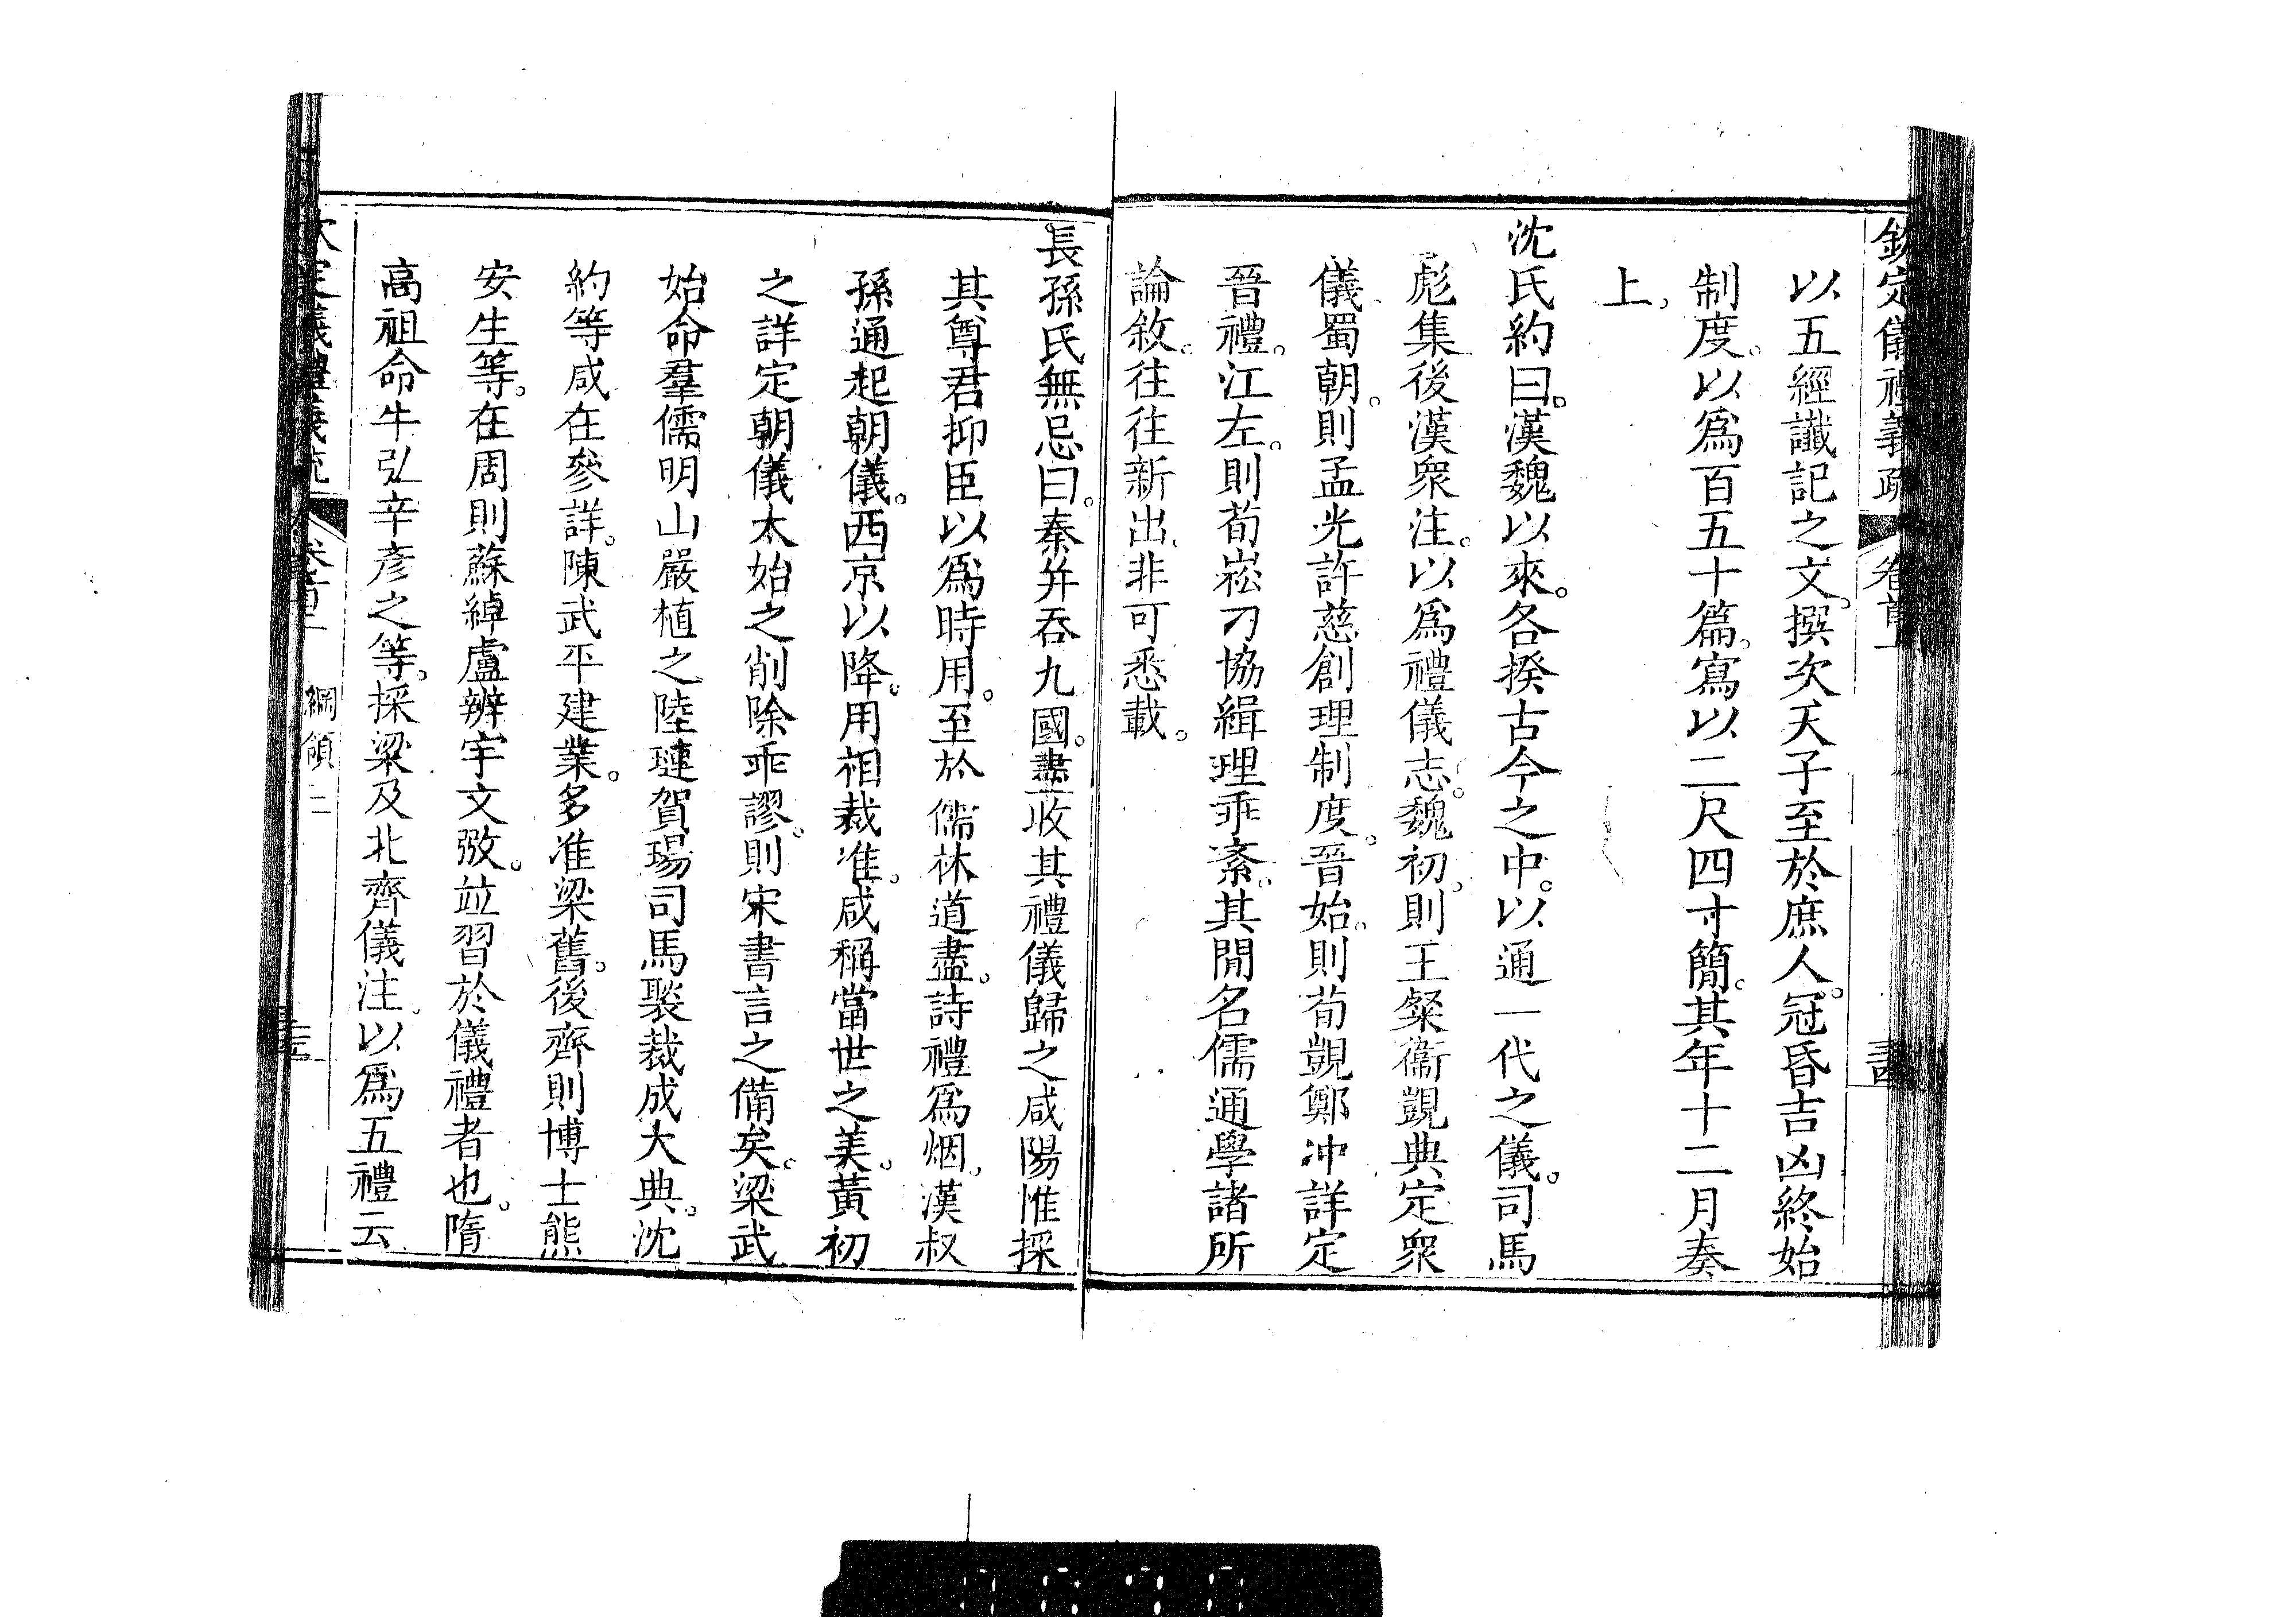 欽定儀禮義疏 卷首上
以五經讖記之文。撰次天子至於庶人。冠昏吉凶終始
制度。以爲百五十篇。寫以二尺四寸簡。其年十二月奏
上。
沈氏約曰。漢魏以來。各揆古今之中。以通一代之儀。司馬
彪集後漢衆注。以爲禮儀志。魏初。則王粲衞覬典定衆
儀。蜀朝。則孟光許慈創理制度。晉始。則荀覬鄭沖詳定
晉禮。江左。則荀崧刁協緝理乖紊。其閒名儒通學諸所
論敘。往往新出。非可悉載。
長孫氏無忌曰。秦并吞九國。盡收其禮儀歸之咸陽惟採
其尊君抑臣以爲時用。至於儒林道盡。詩禮爲烟。漢叔
孫通起朝儀。西京以降。用相裁准。咸稱當世之美。黃初
之詳定朝儀太始之削除乖謬。則宋書言之備矣。梁武
始命羣儒明山嚴植之陸璉賀瑒司馬褧裁成大典。沈
約等咸在參詳。陳武平建業。多准梁舊。後齊則博士熊
安生等。在周則蘇綽盧辨宇文㢸。竝習於儀禮者也。隋
高祖命牛弘辛彥之等。採梁及北齊儀注。以爲五禮云
綱領二